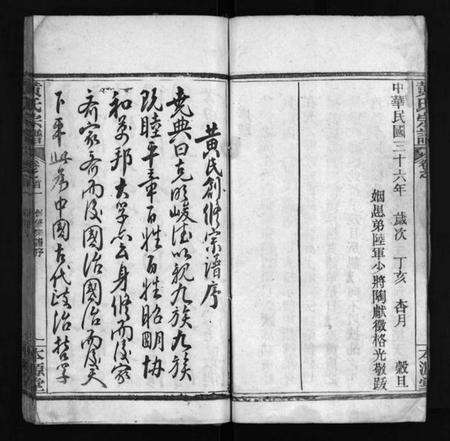 黃氏宗譜
卷之首
中華民國三十六年　歲次　丁亥　杏月　穀旦
姻愚弟陸軍少將陶獻徵格光敬跋
本源堂
黄氏創修宗譜序
堯典曰克明峻德以親九族九族
既睦平章百姓百姓昭明協
和萬邦大學亦云身修而後家
齊家齊而後國治國治而後天
下平此為中國古代政治哲學
黃氏宗譜
卷首
本源堂